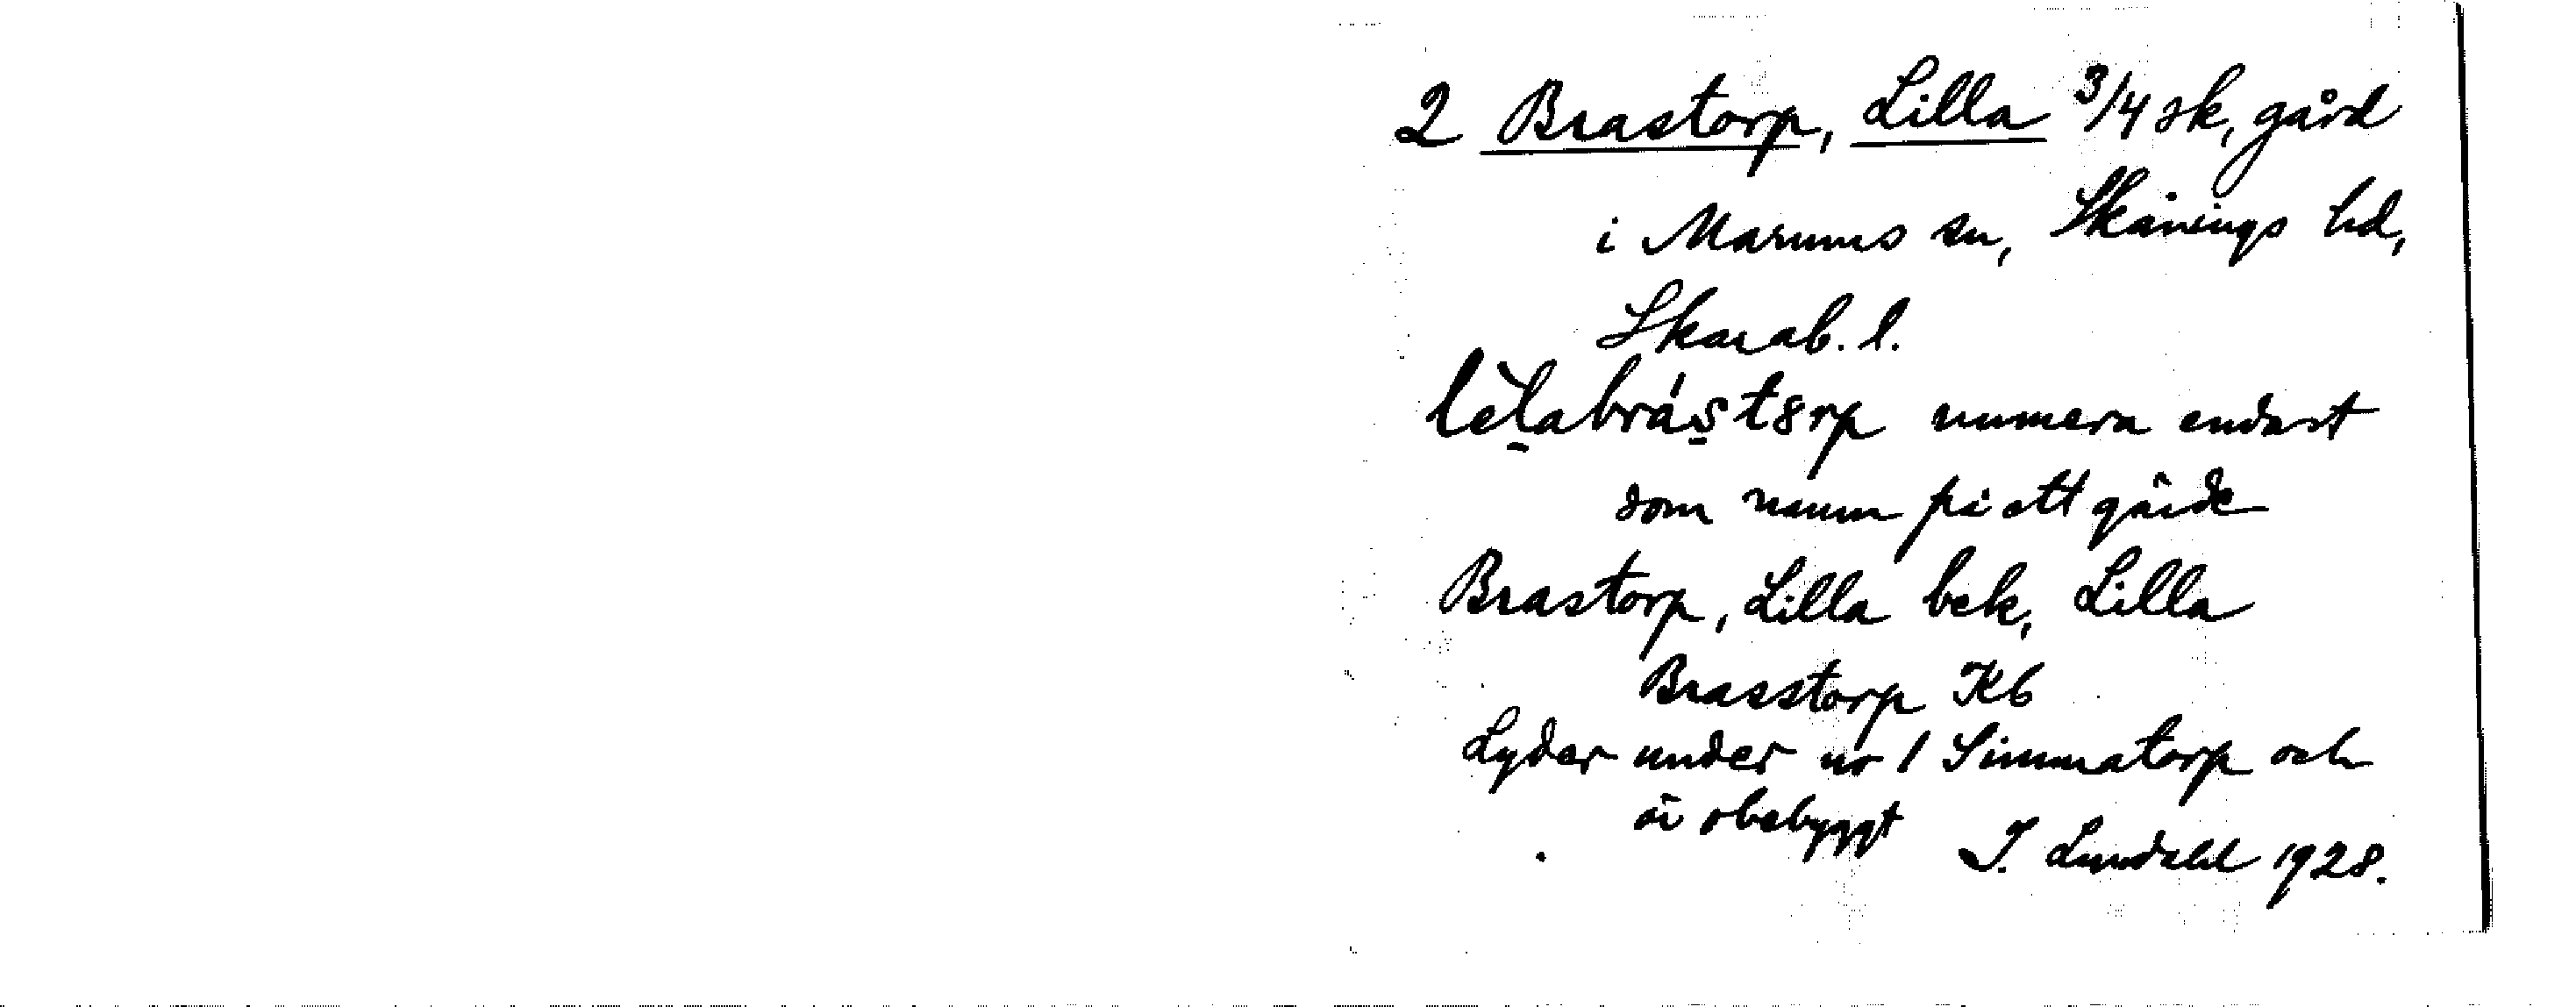 2 Brastorp, Lilla 3/4 sk, gård
i Marums sn, Skånings hd,
Skarab. l.
lèlabrás̠t8rp numera endast
som namn på ett gärde
Brastorp, Lilla bek, Lilla
Brasstorp Kb
Lyder under nr 1 Simmatorp och
är obebyggt
I. Lundahl 1928.